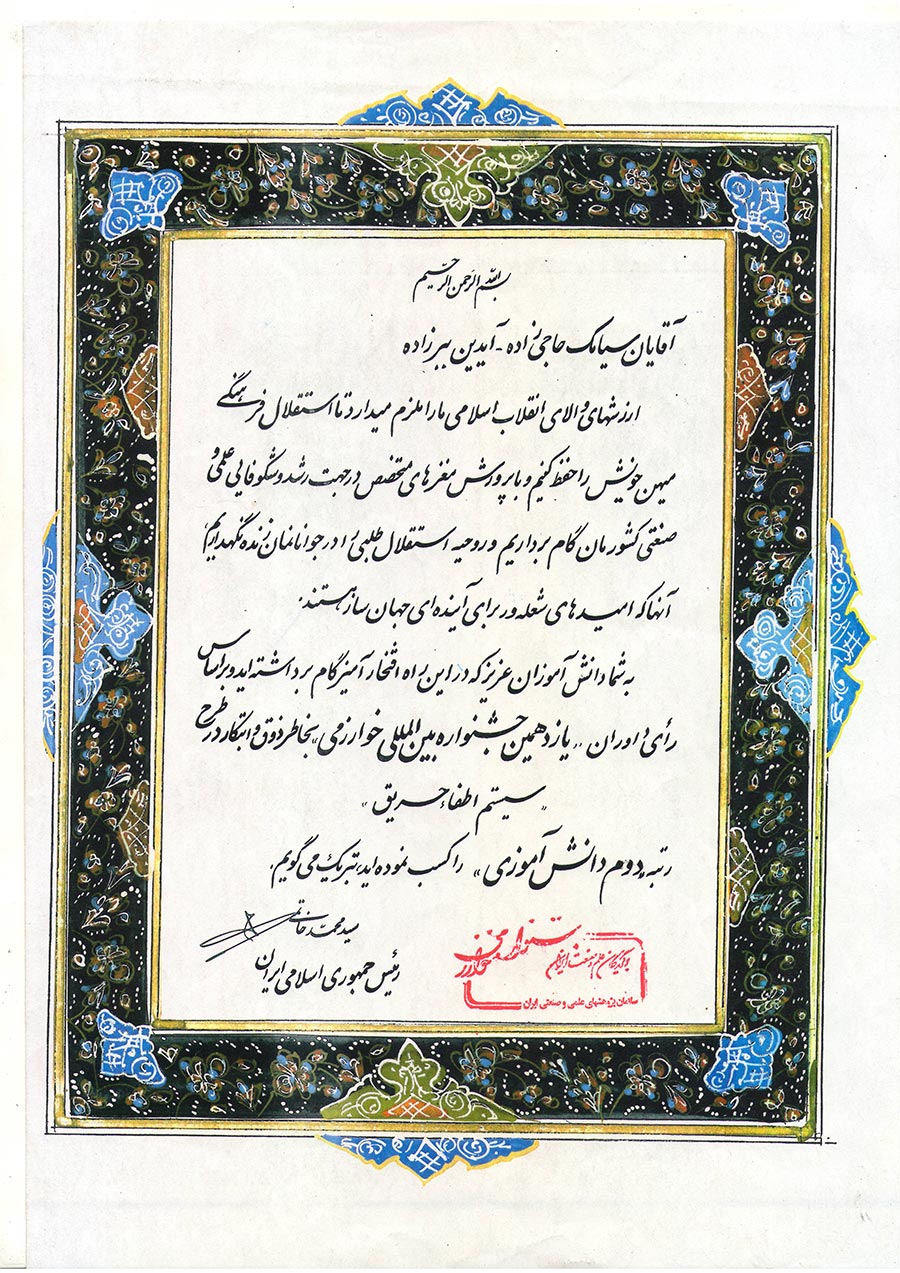 بسم الله الرحمن الرحیم
آقایان سیامک حاجی زاده - آیدین ببرزاده
ارزشهای والای انقلاب اسلامی ما را ملزم میدارد تا استقلال فرهنگی
میهن خویش را حفظ کنیم و با پرورش مغزهای متخصص در جهت رشد و شکوفایی علمی و
صنعتی کشورمان گام برداریم و روحیه استقلال طلبی را در جوانانمان زنده نگهداریم،
آنها که امیدهای شعله ور برای آینده ای جهان ساز هستند.
به شما دانش آموزان عزیز که در این راه افتخار آمیز گام برداشته اید و بر اساس
رأی داوران «یازدهمین جشنواره بین المللی خوارزمی» بخاطر ذوق و ابتکار در طرح
«سیستم اطفاء حریق»
رتبه «دوم دانش آموزی» را کسب نموده اید، تبریک می گویم.
سید محمد خاتمی
رئیس جمهوری اسلامی ایران
جشنواره خوارزمی
سازمان پژوهشهای علمی و صنعتی ایران